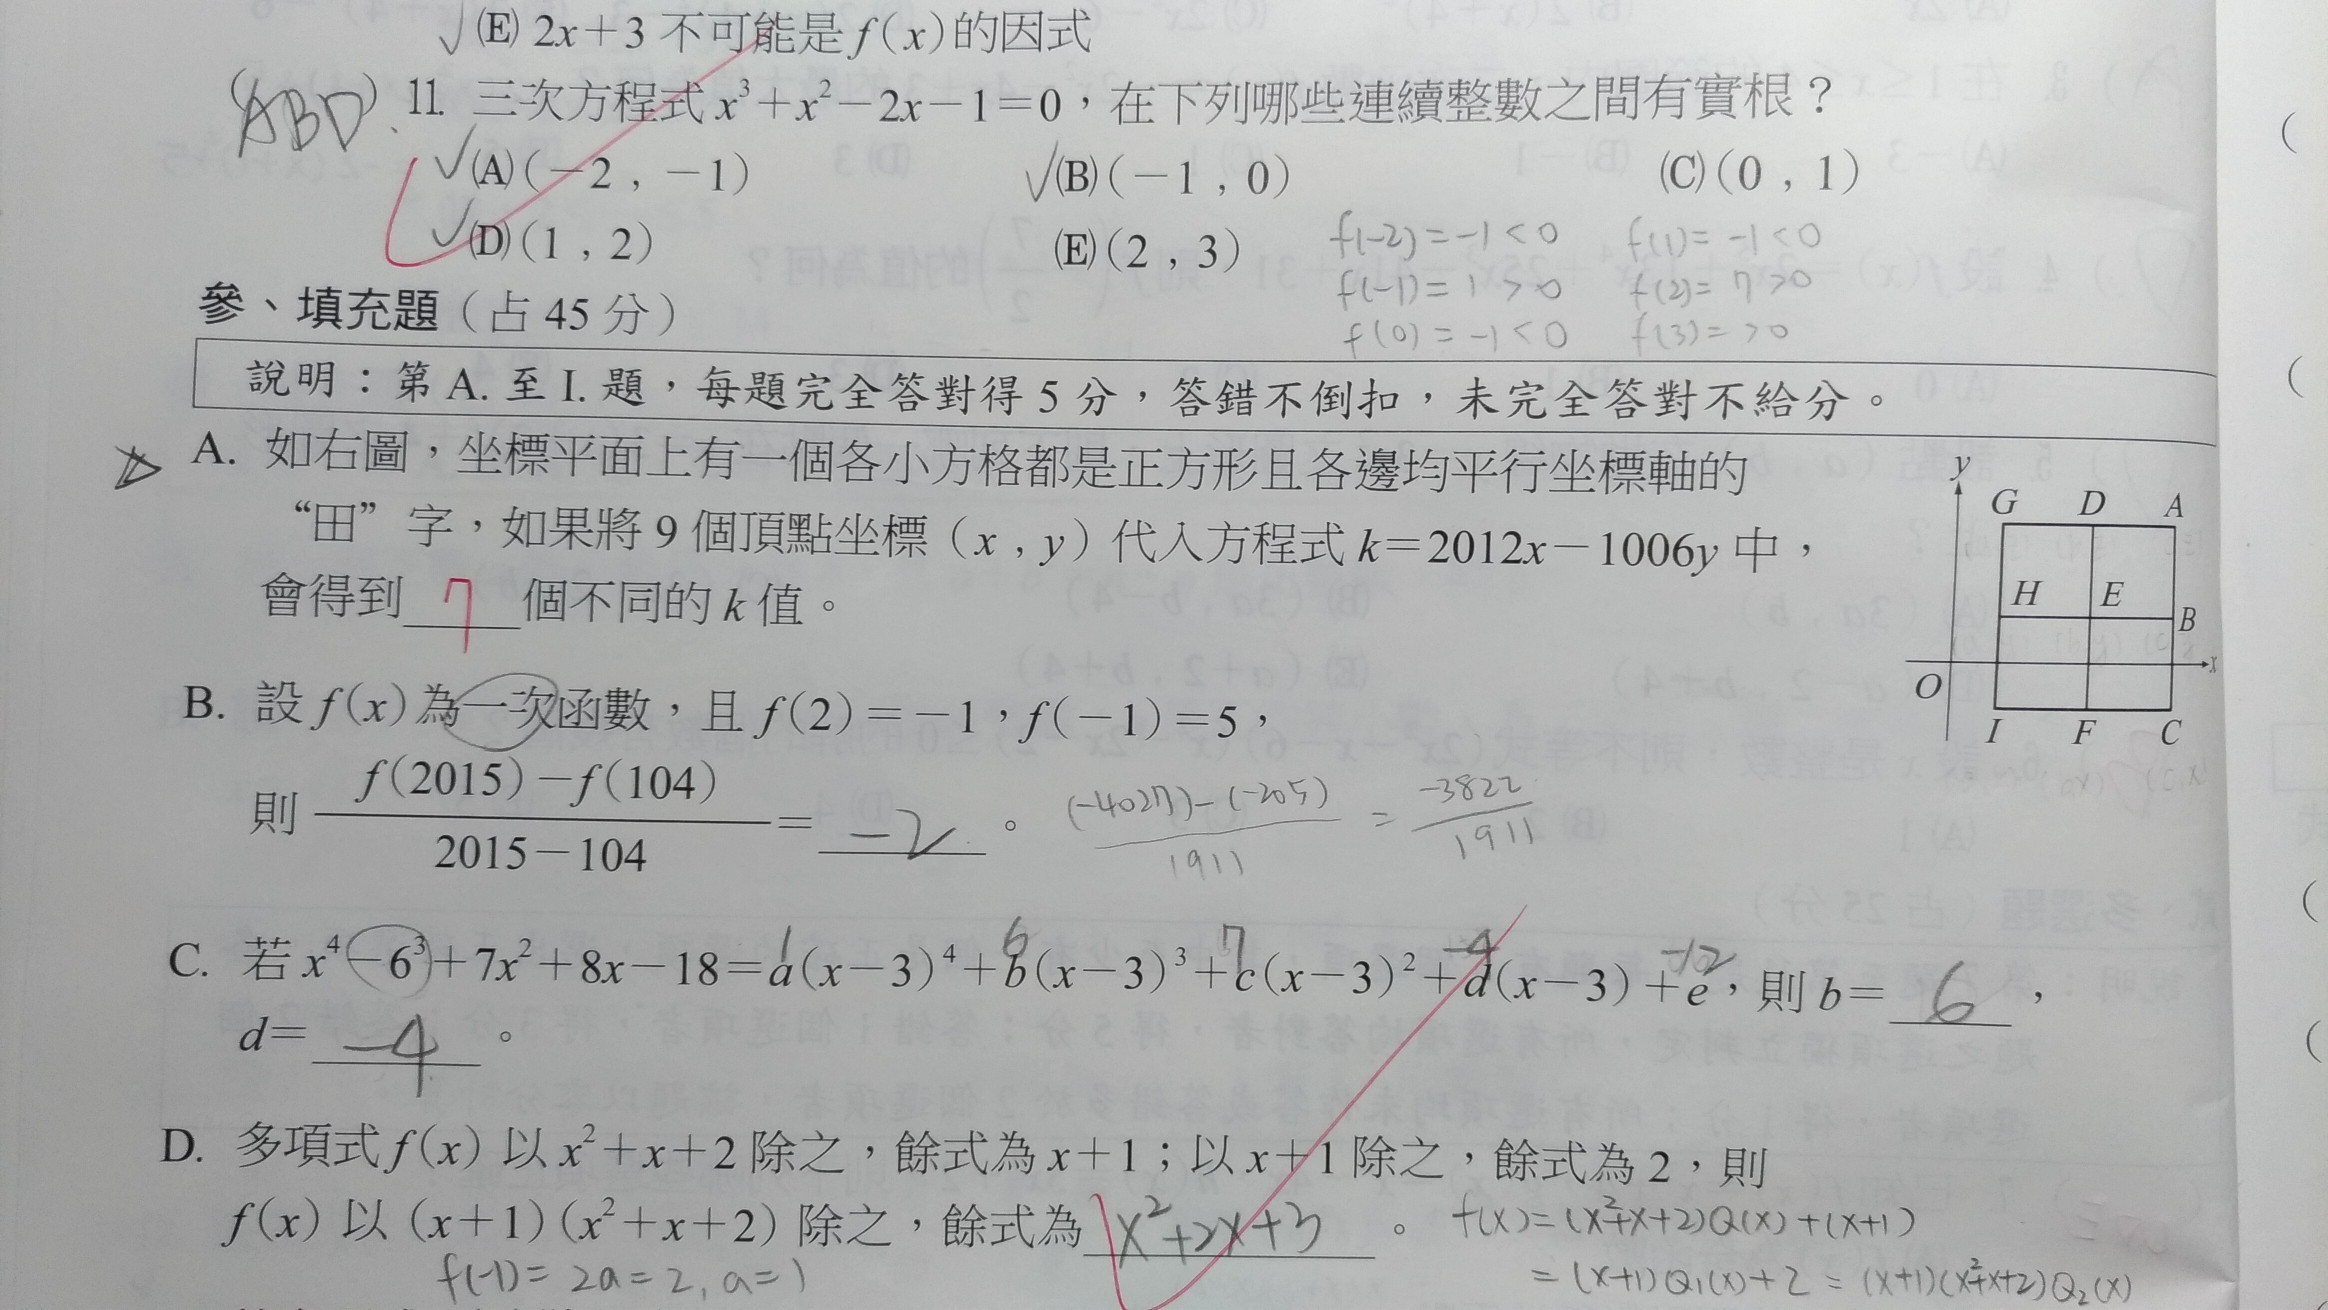 (E) 2x+3 不可能是 f(x)的因式
(ABD) 11. 三次方程式 x³+x²−2x−1=0，在下列哪些連續整數之間有實根？
(A)(−2 , −1) (B)(−1 , 0) (C)(0 , 1)
(D)(1 , 2) (E)(2 , 3)
f(-2)=-1<0 f(1)=-1<0
f(-1)=1>0 f(2)=7>0
f(0)=-1<0 f(3)=>0
參、填充題（占 45 分）
說明：第 A. 至 I. 題，每題完全答對得 5 分，答錯不倒扣，未完全答對不給分。
A. 如右圖，坐標平面上有一個各小方格都是正方形且各邊均平行坐標軸的
“田”字，如果將 9 個頂點坐標（x , y）代入方程式 k=2012x−1006y 中，
會得到 7 個不同的 k 值。
y
G D A
H E B
x
O
I F C
B. 設 f(x)為一次函數，且 f(2)=−1，f(−1)=5，
則 f(2015)−f(104) / 2015−104 = -2 。 (-4027)-(-205) / 1911 = -3822 / 1911
1 6 7 -4 -12
C. 若 x⁴−6³+7x²+8x−18=a(x−3)⁴+b(x−3)³+c(x−3)²+d(x−3)+e，則 b= 6 ，
d= -4 。
D. 多項式 f(x) 以 x²+x+2 除之，餘式為 x+1；以 x+1 除之，餘式為 2，則
f(x) 以 (x+1)(x²+x+2) 除之，餘式為 x²+2x+3 。 f(x)=(x²+x+2)Q(x)+(x+1)
f(-1)=2a=2, a=1 =(x+1)Q₁(x)+2=(x+1)(x²+x+2)Q₂(x)